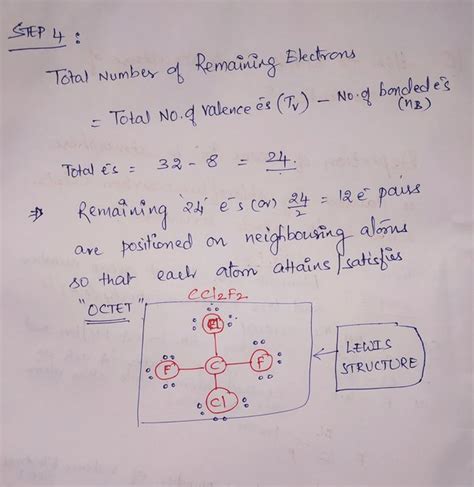 STEP 4 :
Total Number of Remaining Electrons
= Total No. of valence es (Tv) – No. of bonded es (nB)
Total es = 32 - 8 = 24.
⇒ Remaining '24' es (or) 24/2 = 12 e pairs
are positioned on neighbouring atoms
so that each atom attains/satisfies
"OCTET"
CCl2F2
Cl
F C F
Cl
LEWIS
STRUCTURE